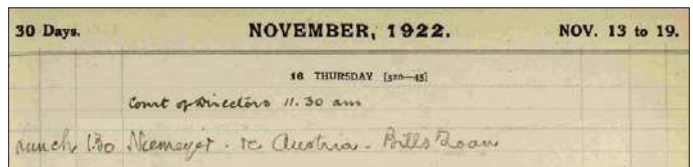 30 Days. NOVEMBER, 1922. NOV. 13 to 19.
16 THURSDAY [320—45]
Court of Directors 11.30 am
Lunch 1.30 Niemeyer. re Austria - Bills Loan